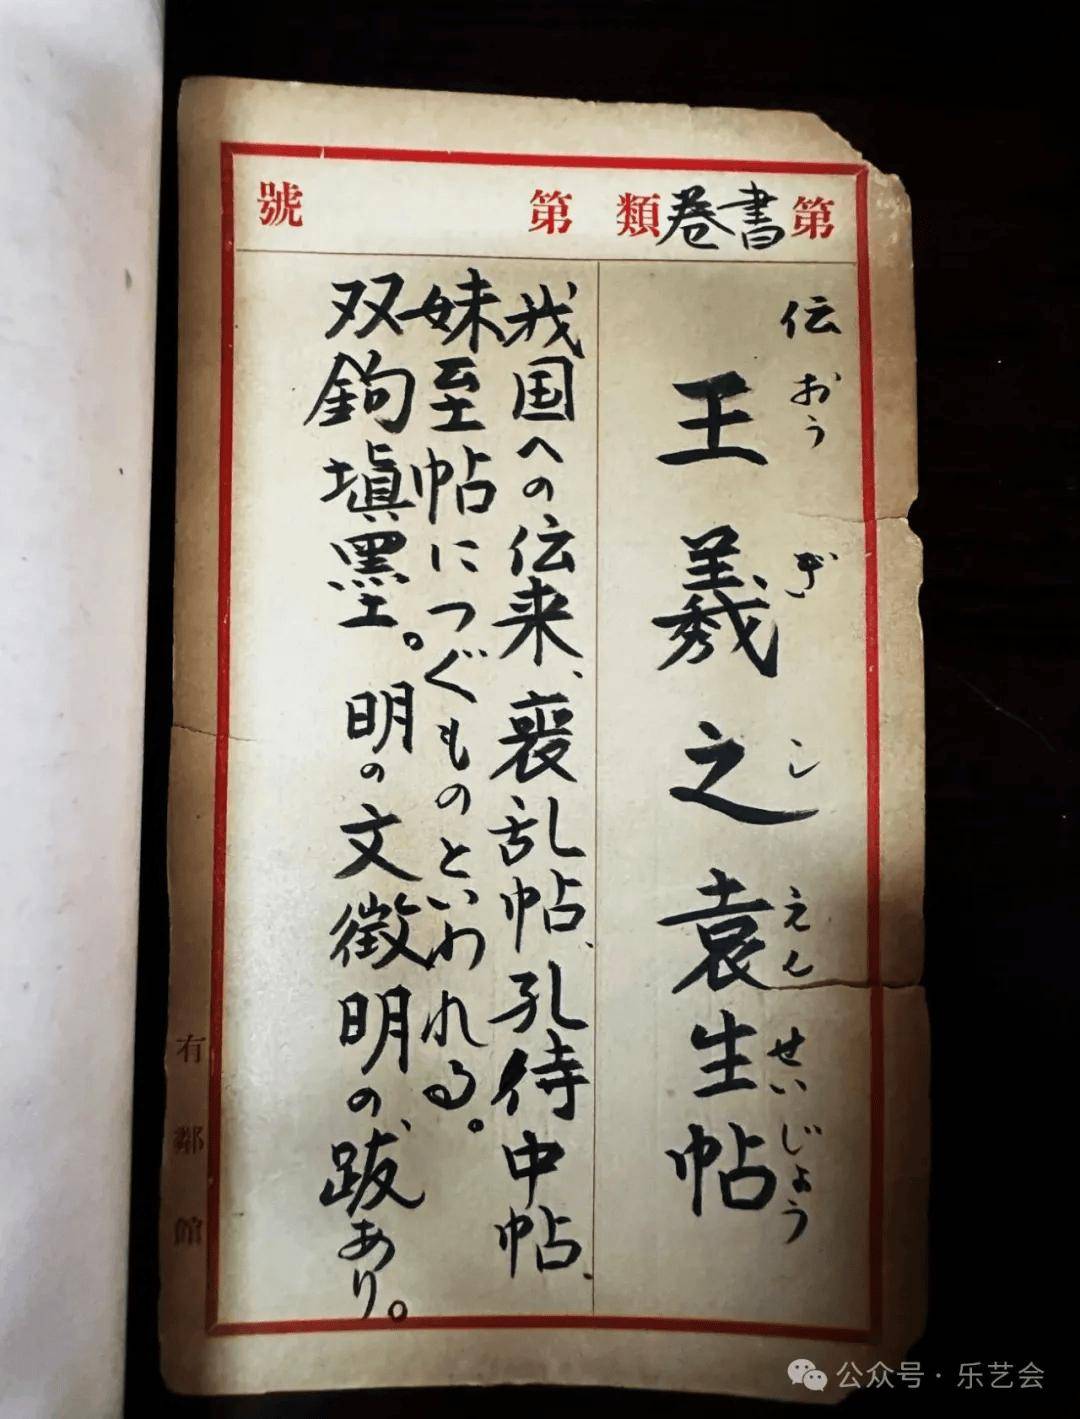 第書巻類 第 號
伝
王羲之袁生帖
おうぎしえんせいじょう
我国への伝来、喪乱帖、孔侍中帖、
妹至帖につぐものといわれる。
双鉤塡墨。明の文徴明の跋あり。
有鄰館
公众号·乐艺会